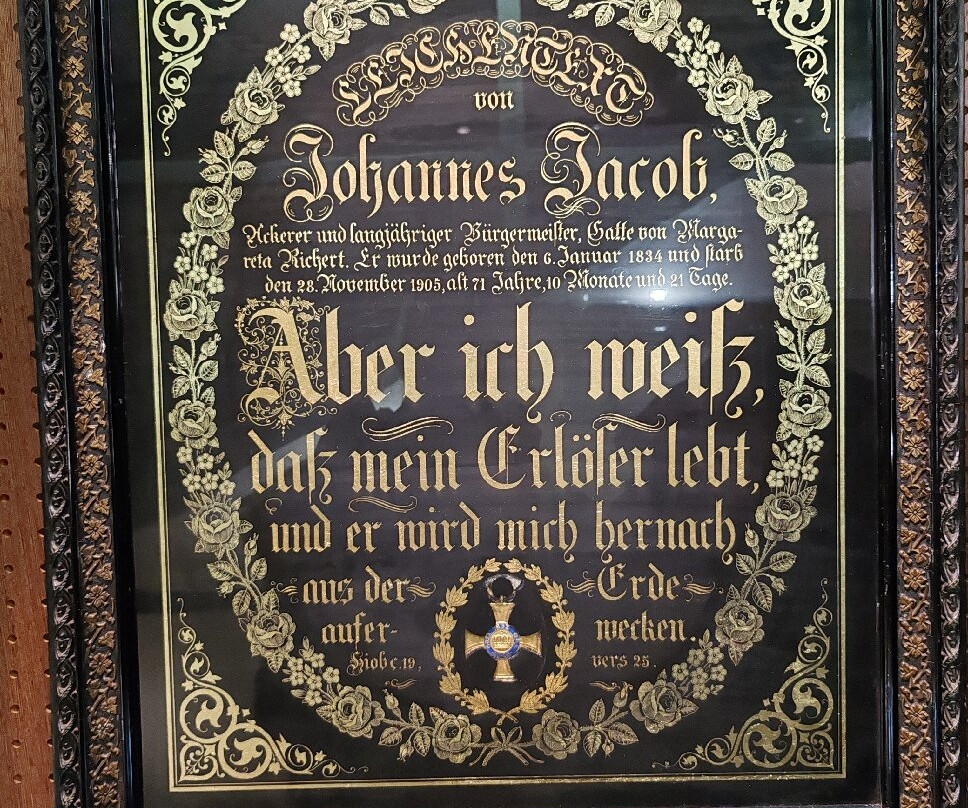 LEICHENTEXT
von
Johannes Jacob,
Ackerer und langjähriger Bürgermeister, Gatte von Marga-
reta Richert. Er wurde geboren den 6. Januar 1834 und starb
den 28. November 1905, alt 71 Jahre, 10 Monate und 21 Tage.
Aber ich weiß,
daß mein Erlöser lebt,
und er wird mich hernach
aus der Erde
aufer- wecken.
Hiob c. 19, vers 25.